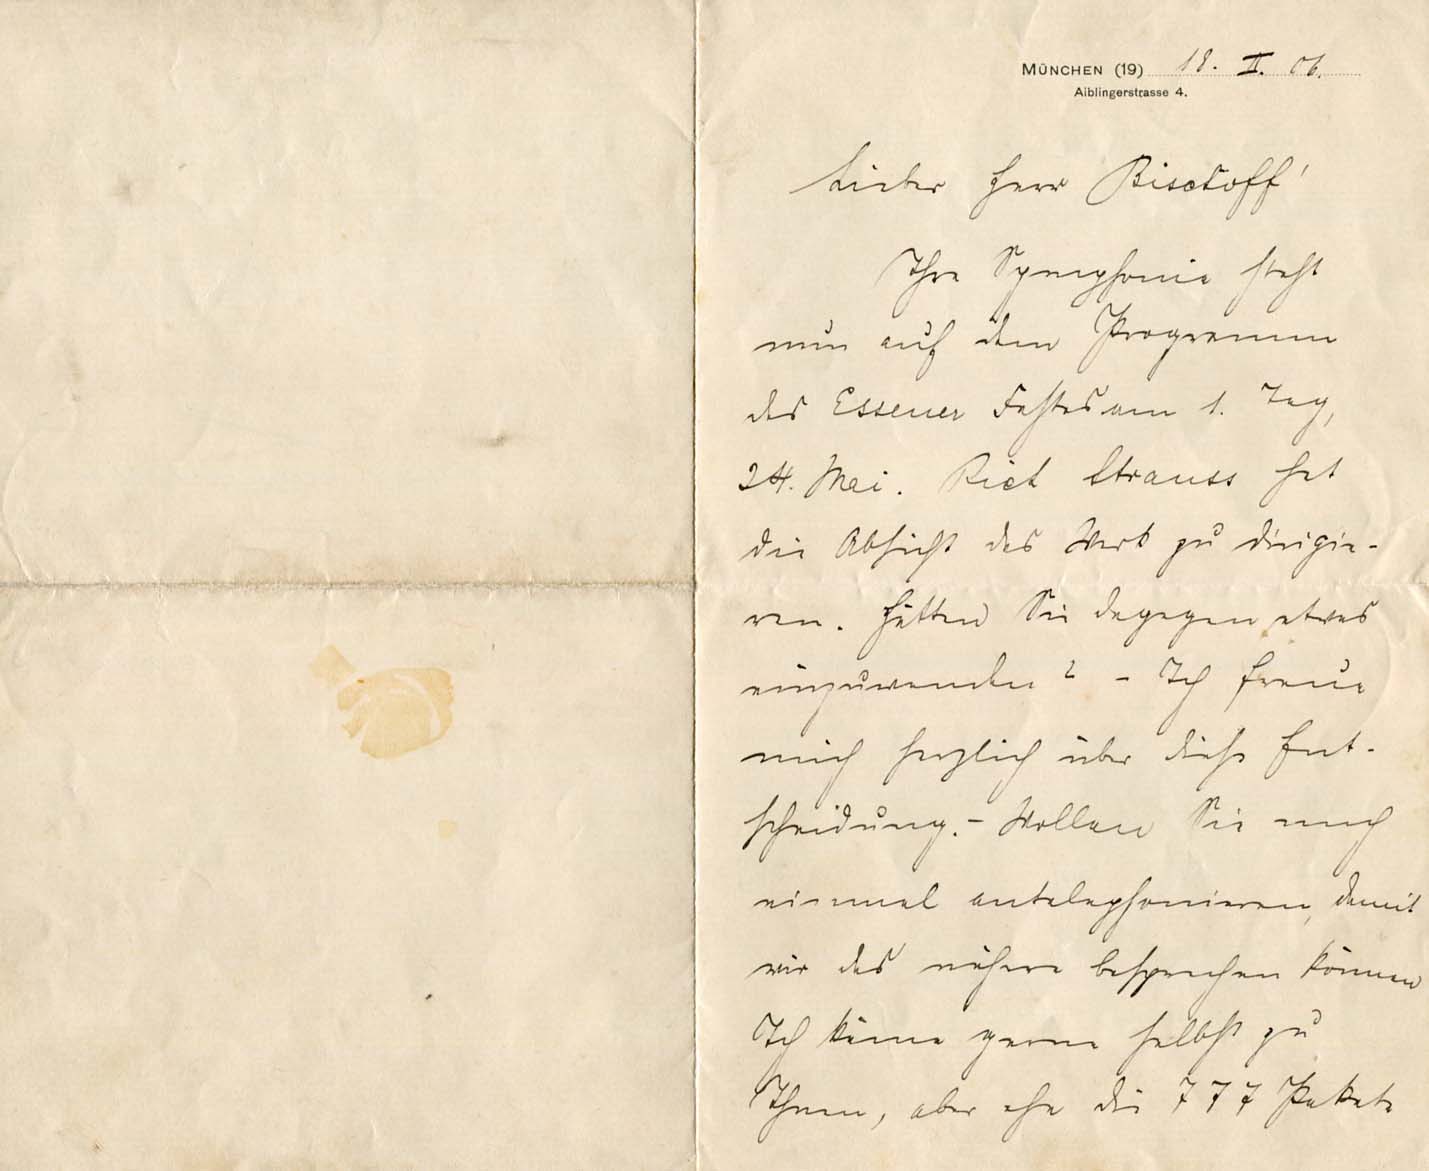 MÜNCHEN (19) 18. II. 06.
Aiblingerstrasse 4.
Lieber Herr Bischoff!
Ihre Symphonie steht
nun auf dem Programm
des Essener Festes am 1. Tag,
24. Mai. Rich Strauss hat
die Absicht das Werk zu dirigie-
ren. Hätten Sie dagegen etwas
einzuwenden? – Ich freue
mich herzlich über diese Ent-
scheidung. – Wollen Sie mich
einmal antelephonieren, damit
wir das nähere besprechen können
Ich käme gerne selbst zu
Ihnen, aber ehe die 777 Pakete